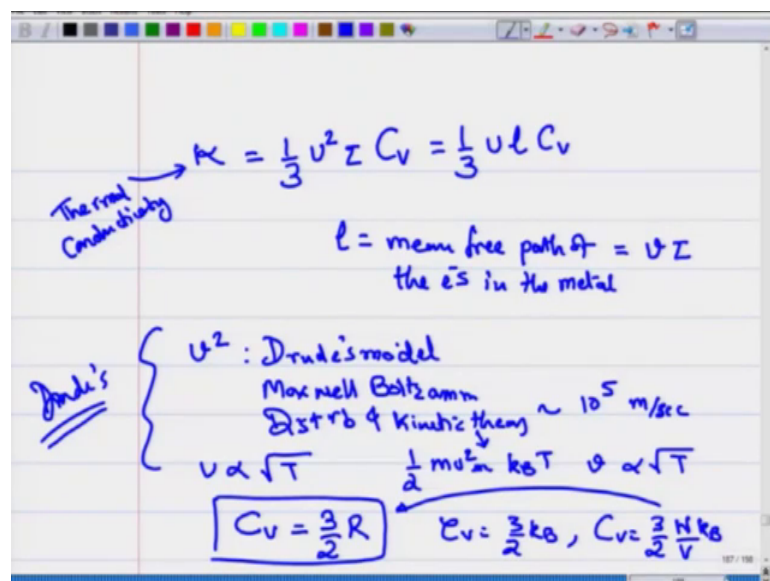 κ = 1/3 v² τ Cv = 1/3 v l Cv
Thermal
Conductivity
l = mean free path of = v τ
the e⁻s in the metal
Drude's
v² : Drude's model
Maxwell Boltzamm
Distrb & Kinetic theory ~ 10⁵ m/sec
v ∝ √T 1/2 mv² ≈ kBT v ∝ √T
Cv = 3/2 R Cv = 3/2 kB, Cv = 3/2 N/V kB
187 / 198